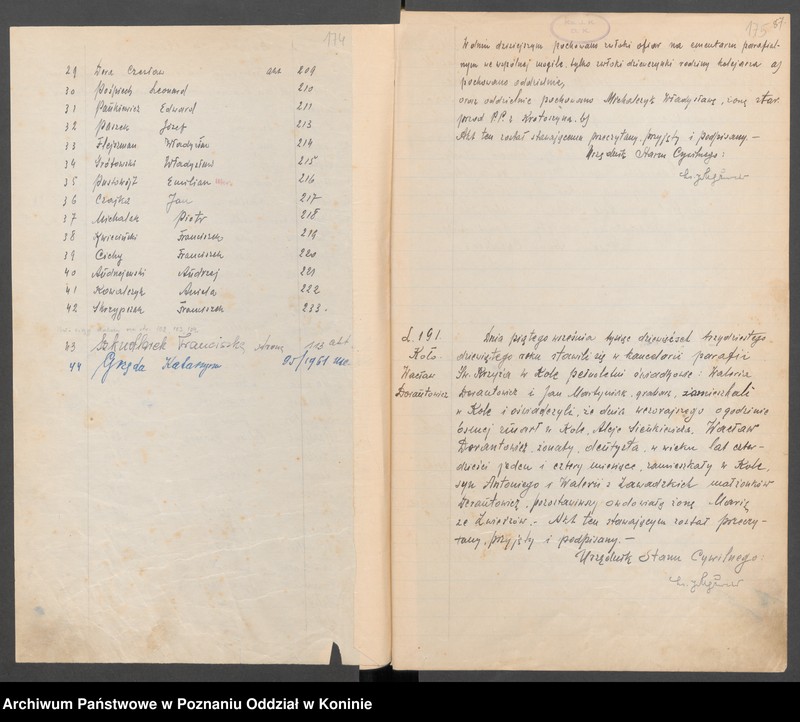 174
29 Dera Czesław akt 209
30 Pośpiech Leonard 210
31 Pańkiewicz Edward 211
32 Paszek Józef 213
33 Flejszman Władysław 214
34 Wrótowski Władysław 215
35 Pustowójt Emilian 216
36 Czajka Jan 217
37 Michalak Piotr 218
38 Kwieciński Franciszek 219
39 Cichy Franciszek 220
40 Andrzejewski Andrzej 221
41 Kowalczyk Aniela 222
42 Skrzypczak Franciszek 233.
43 Szkudlarek Franciszka strona 113 akt
44 Gręda Katarzyna 95/1961
175 57.
W dniu dzisiejszym pochowano zwłoki ofiar na cmentarzu parafial-
nym we wspólnej mogile, tylko zwłoki dziewczynki rodziny kolejarza a)
pochowano oddzielnie,
oraz oddzielnie pochowano Michalczyk Władysławę, żonę star.
przod. P.P. z Krotoszyna. b)
Akt ten został stawającemu przeczytany, przyjęty i podpisany. —
Urzędnik Stanu Cywilnego:
L. 191.
Koło.
Wacław
Derantowicz
Dnia piątego września tysiąc dziewięćset trzydziestego
dziewiątego roku stawili się w kancelarii parafii
Św. Krzyża w Kole pełnoletni świadkowie: Waleria
Derantowicz i Jan Martyniak, grabarz, zamieszkali
w Kole i oświadczyli, że dnia wczorajszego o godzinie
ósmej zmarł w Kole, Aleje Sienkiewicza, Wacław
Derantowicz, żonaty, dentysta, w wieku lat czter-
dzieści jeden i cztery miesiące, zamieszkały w Kole,
syn Antoniego i Walerii z Zawadzkich małżonków
Derantowicz, pozostawiwszy owdowiałą żonę Marię
ze Zwierzów. — Akt ten stawającym został przeczy-
tany, przyjęty i podpisany. —
Urzędnik Stanu Cywilnego:
Archiwum Państwowe w Poznaniu Oddział w Koninie